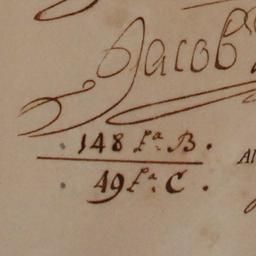 Jacob
· 148 f.ª B ·
· 49 f.ª C ·